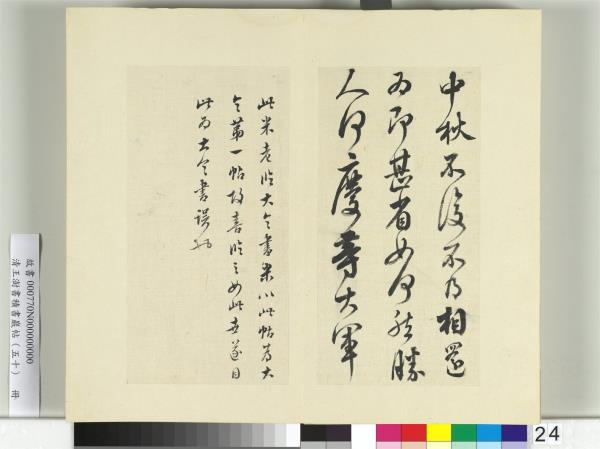 中秋不復不得相還
為即甚省如何然勝
人何慶等大軍
此米老臨大令書米以此帖為大
令第一帖故喜臨之如此世遂目
此為大令書誤也
故書 000770N000000000
清王澍書積書巖帖(五十) 冊
24